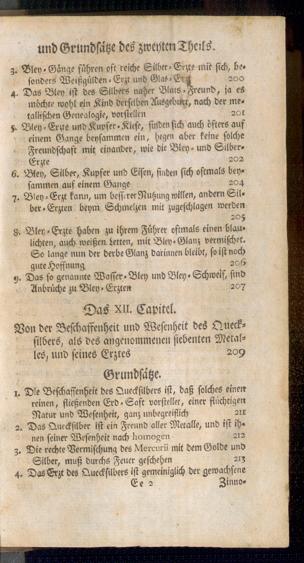 und Grundsätze des zweyten Theils.
3. Bley-Gänge führen oft reiche Silber-Erze mit sich, be-
sonders Weißgülden-Erzt und Glas-Erzt 200
4. Das Bley ist des Silbers naher Bluts-Freund, ja es
möchte wohl ein Kind derselben Ausgeburt, nach der me-
talischen Genealogie, vorstellen 201
5. Bley-Erzte und Kupfer-Kiese, finden sich auch öfters auf
einem Gange beysammen ein, hegen aber keine solche
Freundschaft mit einander, wie die Bley- und Silber-
Erzte 202
6. Bley, Silber, Kupfer und Eisen, finden sich oftmals bey-
sammen auf einem Gange 204
7. Bley-Erzt kann, um besserer Nutzung willen, andern Sil-
ber-Erzten beym Schmelzen mit zugeschlagen werden
205
8. Bley-Erzte haben zu ihrem Führer oftmals einen blau-
lichten, auch weißen Letten, mit Bley-Glanz vermischet.
So lange nun der derbe Glanz darinnen bleibt, so ist noch
gute Hoffnung 206
9. Das so genannte Wasser-Bley und Bley-Schweif, sind
Anbrüche zu Bley-Erzten 207
Das XII. Capitel.
Von der Beschaffenheit und Wesenheit des Queck-
silbers, als des angenommenen siebenten Metal-
les, und seines Erztes 209
Grundsätze.
1. Die Beschaffenheit des Quecksilbers ist, daß solches einen
reinen, fließenden Erd-Saft vorstellet, einer flüchtigen
Natur und Wesenheit, ganz unbegreiflich 211
2. Das Quecksilber ist ein Freund aller Metalle, und ist ih-
nen seiner Wesenheit nach homogen 212
3. Die rechte Vermischung des Mercurii mit dem Golde und
Silber, muß durchs Feuer geschehen 213
4. Das Erzt des Quecksilbers ist gemeiniglich der gewachsene
Ee 2 Zinno-